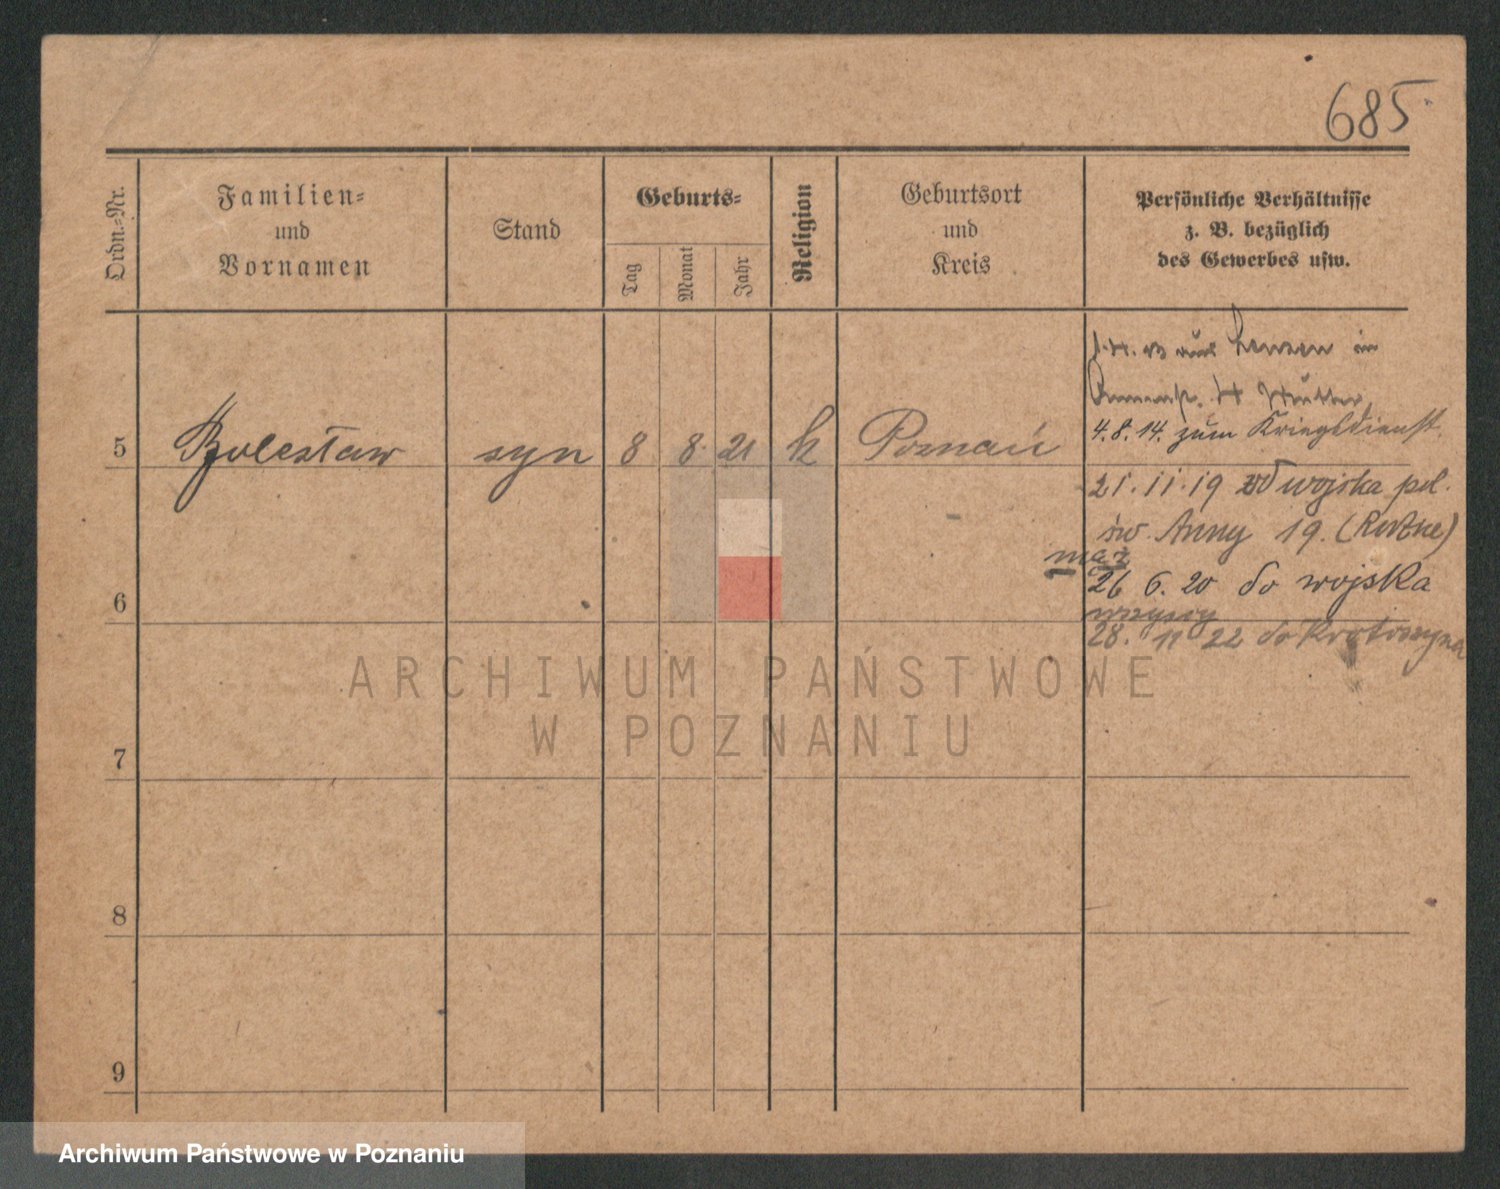 685
Ordn.-Nr.
Familien-
und
Vornamen
Stand
Geburts-
Tag
Monat
Jahr
Religion
Geburtsort
und
Kreis
Persönliche Verhältnisse
z. B. bezüglich
des Gewerbes usw.
aus in
4.8.14. zum Kriegsdienst.
5 Bolesław syn 8 8. 21 k Poznań
21.11.19 od wojska pol.
św. Anny 19.
mąż
26 6. 20 do wojska
wszyscy
28. 11 22 do Krotoszyna
6
7
8
9
ARCHIWUM PAŃSTWOWE
W POZNANIU
Archiwum Państwowe w Poznaniu